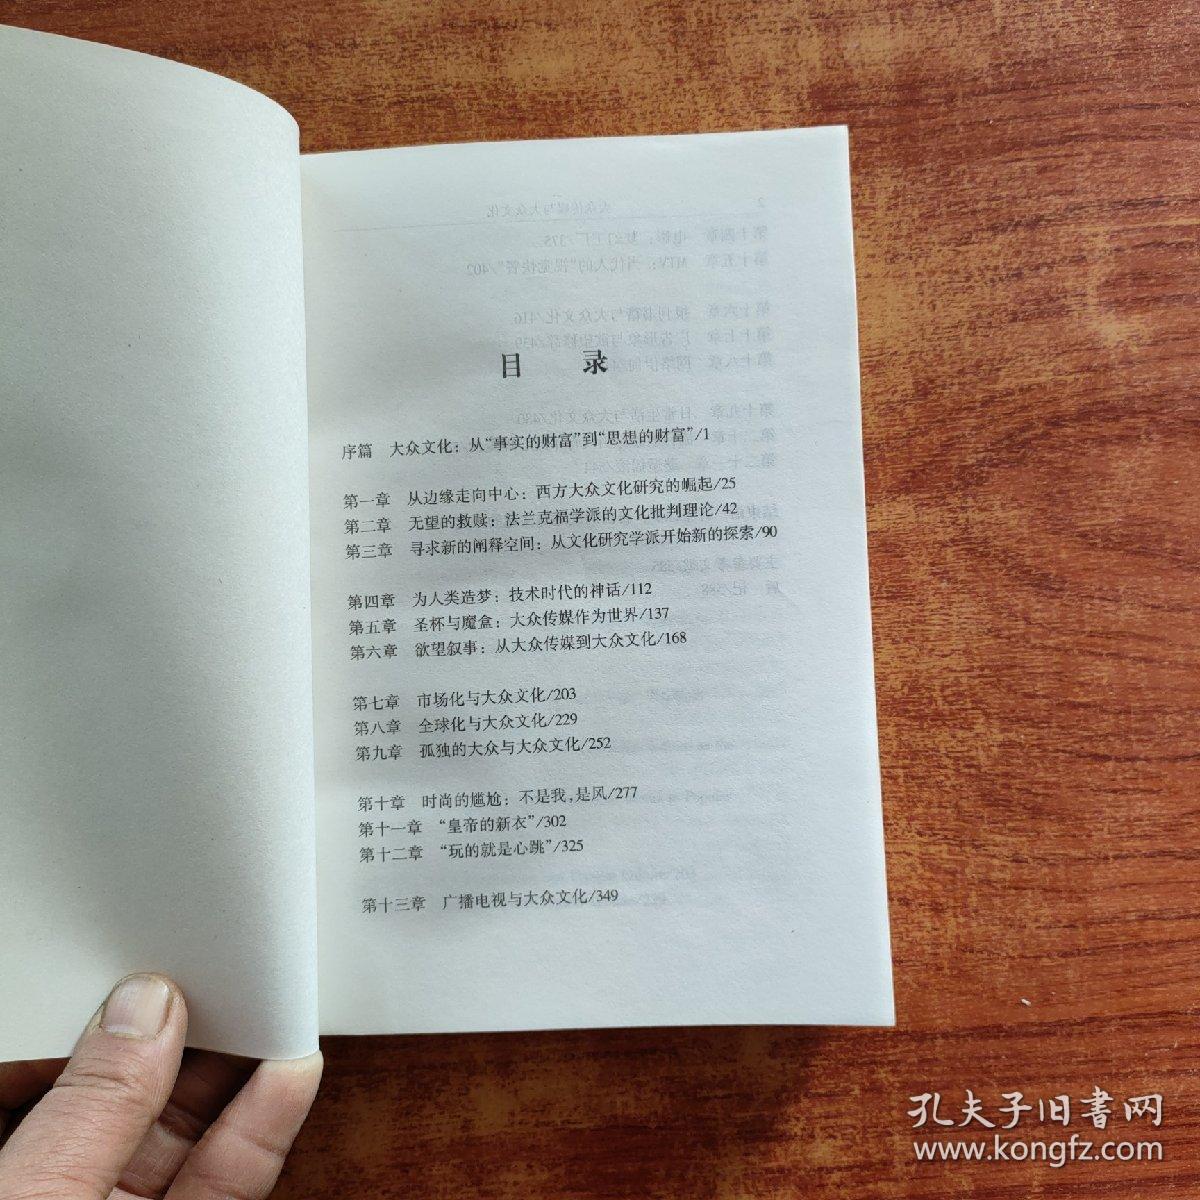 目 录
序篇 大众文化：从“事实的财富”到“思想的财富”/1
第一章 从边缘走向中心：西方大众文化研究的崛起/25
第二章 无望的救赎：法兰克福学派的文化批判理论/42
第三章 寻求新的阐释空间：从文化研究学派开始新的探索/90
第四章 为人类造梦：技术时代的神话/112
第五章 圣杯与魔盒：大众传媒作为世界/137
第六章 欲望叙事：从大众传媒到大众文化/168
第七章 市场化与大众文化/203
第八章 全球化与大众文化/229
第九章 孤独的大众与大众文化/252
第十章 时尚的尴尬：不是我，是风/277
第十一章 “皇帝的新衣”/302
第十二章 “玩的就是心跳”/325
第十三章 广播电视与大众文化/349
孔夫子旧书网
www.kongfz.com